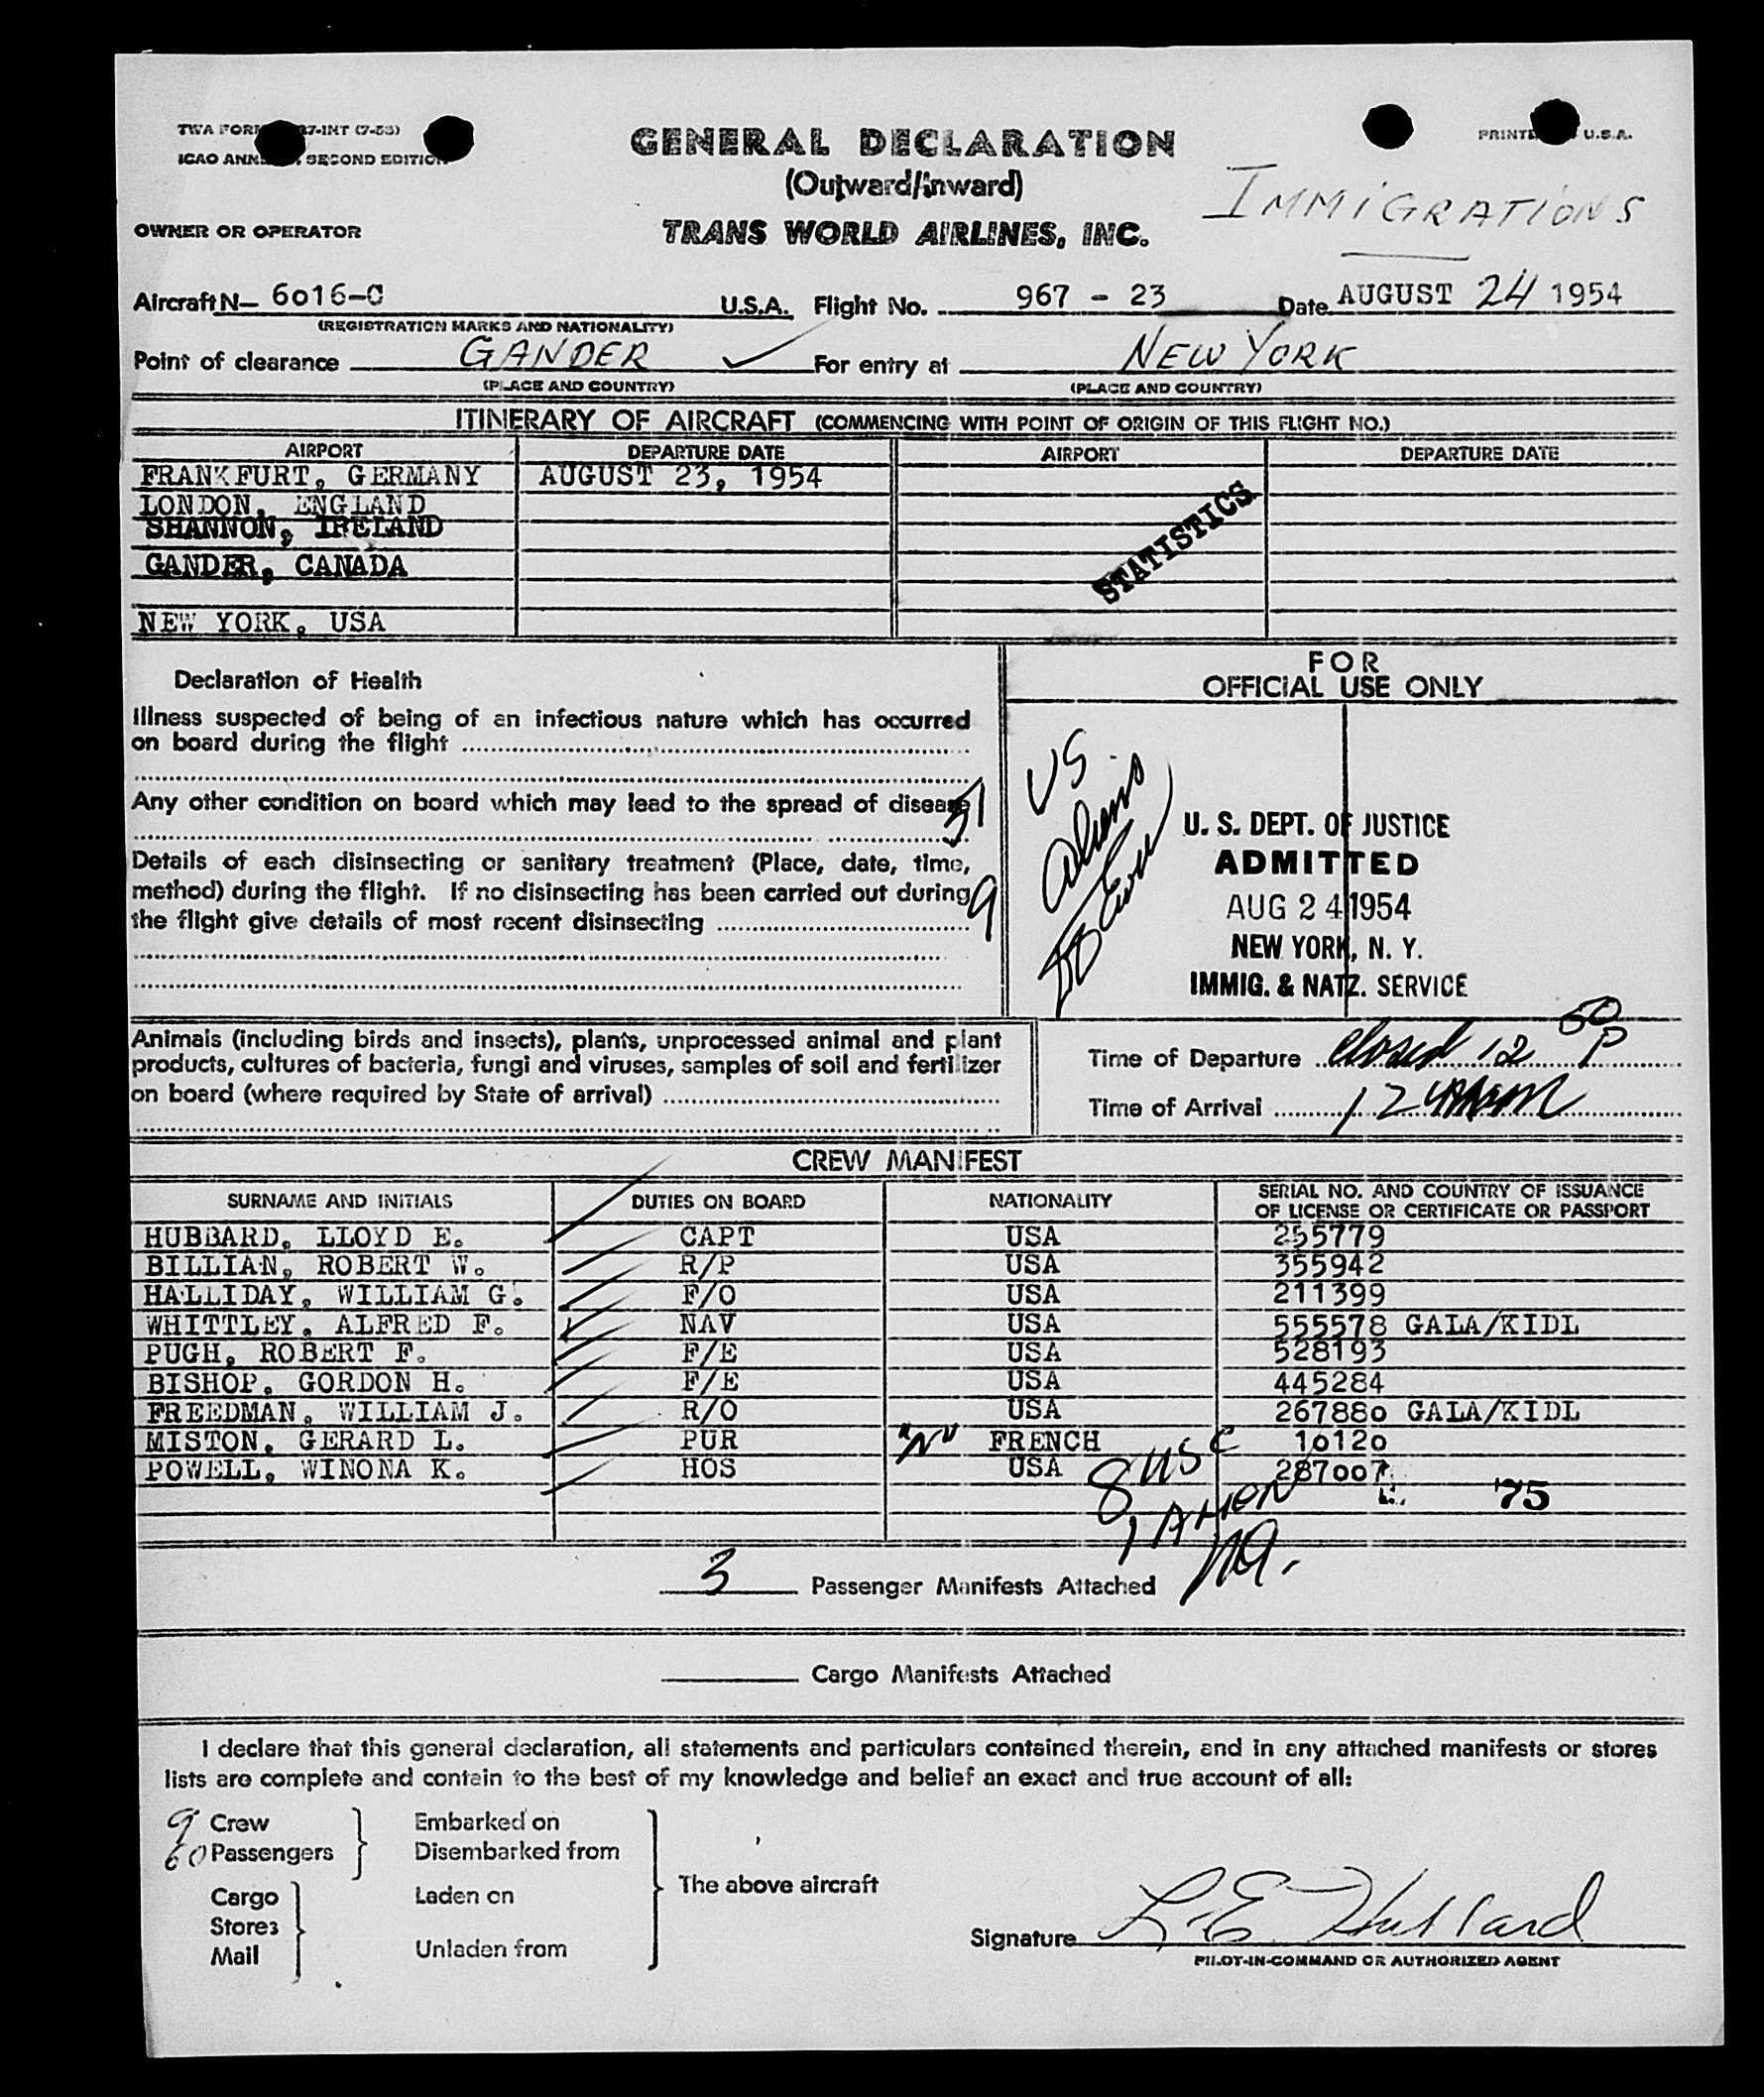 TWA FORM 37-INT (7-53)
ICAO ANNEX SECOND EDITION
PRINTED U.S.A.
GENERAL DECLARATION
(Outward/Inward)
IMMIGRATIONS
OWNER OR OPERATOR
TRANS WORLD AIRLINES, INC.
Aircraft N- 6016-C U.S.A. Flight No. 967 - 23 Date AUGUST 24 1954
(REGISTRATION MARKS AND NATIONALITY)
Point of clearance GANDER For entry at NEW YORK
(PLACE AND COUNTRY) (PLACE AND COUNTRY)
ITINERARY OF AIRCRAFT (COMMENCING WITH POINT OF ORIGIN OF THIS FLIGHT NO.)
AIRPORT DEPARTURE DATE AIRPORT DEPARTURE DATE
FRANKFURT, GERMANY AUGUST 23, 1954
LONDON, ENGLAND
SHANNON, IRELAND
GANDER, CANADA
NEW YORK, USA
STATISTICS
Declaration of Health
Illness suspected of being of an infectious nature which has occurred
on board during the flight
Any other condition on board which may lead to the spread of disease
Details of each disinsecting or sanitary treatment (Place, date, time,
method) during the flight. If no disinsecting has been carried out during
the flight give details of most recent disinsecting
51
9
FOR
OFFICIAL USE ONLY
US
aliens
U. S. DEPT. OF JUSTICE
ADMITTED
AUG 24 1954
NEW YORK, N. Y.
IMMIG. & NATZ. SERVICE
Animals (including birds and insects), plants, unprocessed animal and plant
products, cultures of bacteria, fungi and viruses, samples of soil and fertilizer
on board (where required by State of arrival)
Time of Departure closed 12 50 P
Time of Arrival 12
CREW MANIFEST
SURNAME AND INITIALS DUTIES ON BOARD NATIONALITY SERIAL NO. AND COUNTRY OF ISSUANCE
OF LICENSE OR CERTIFICATE OR PASSPORT
HUBBARD, LLOYD E. CAPT USA 255779
BILLIAN, ROBERT W. R/P USA 355942
HALLIDAY, WILLIAM G. F/O USA 211399
WHITTLEY, ALFRED F. NAV USA 555578 GALA/KIDL
PUGH, ROBERT F. F/E USA 528193
BISHOP, GORDON H. F/E USA 445284
FREEDMAN, WILLIAM J. R/O USA 267880 GALA/KIDL
MISTON, GERARD L. PUR "N" FRENCH 10120
POWELL, WINONA K. HOS USA 287007
8 USC
1 ALIEN
75
3 Passenger Manifests Attached
Cargo Manifests Attached
I declare that this general declaration, all statements and particulars contained therein, and in any attached manifests or stores
lists are complete and contain to the best of my knowledge and belief an exact and true account of all:
9 Crew Embarked on
60 Passengers Disembarked from
The above aircraft
Cargo Laden on
Stores
Mail Unladen from
Signature L E Hubbard
PILOT-IN-COMMAND OR AUTHORIZED AGENT